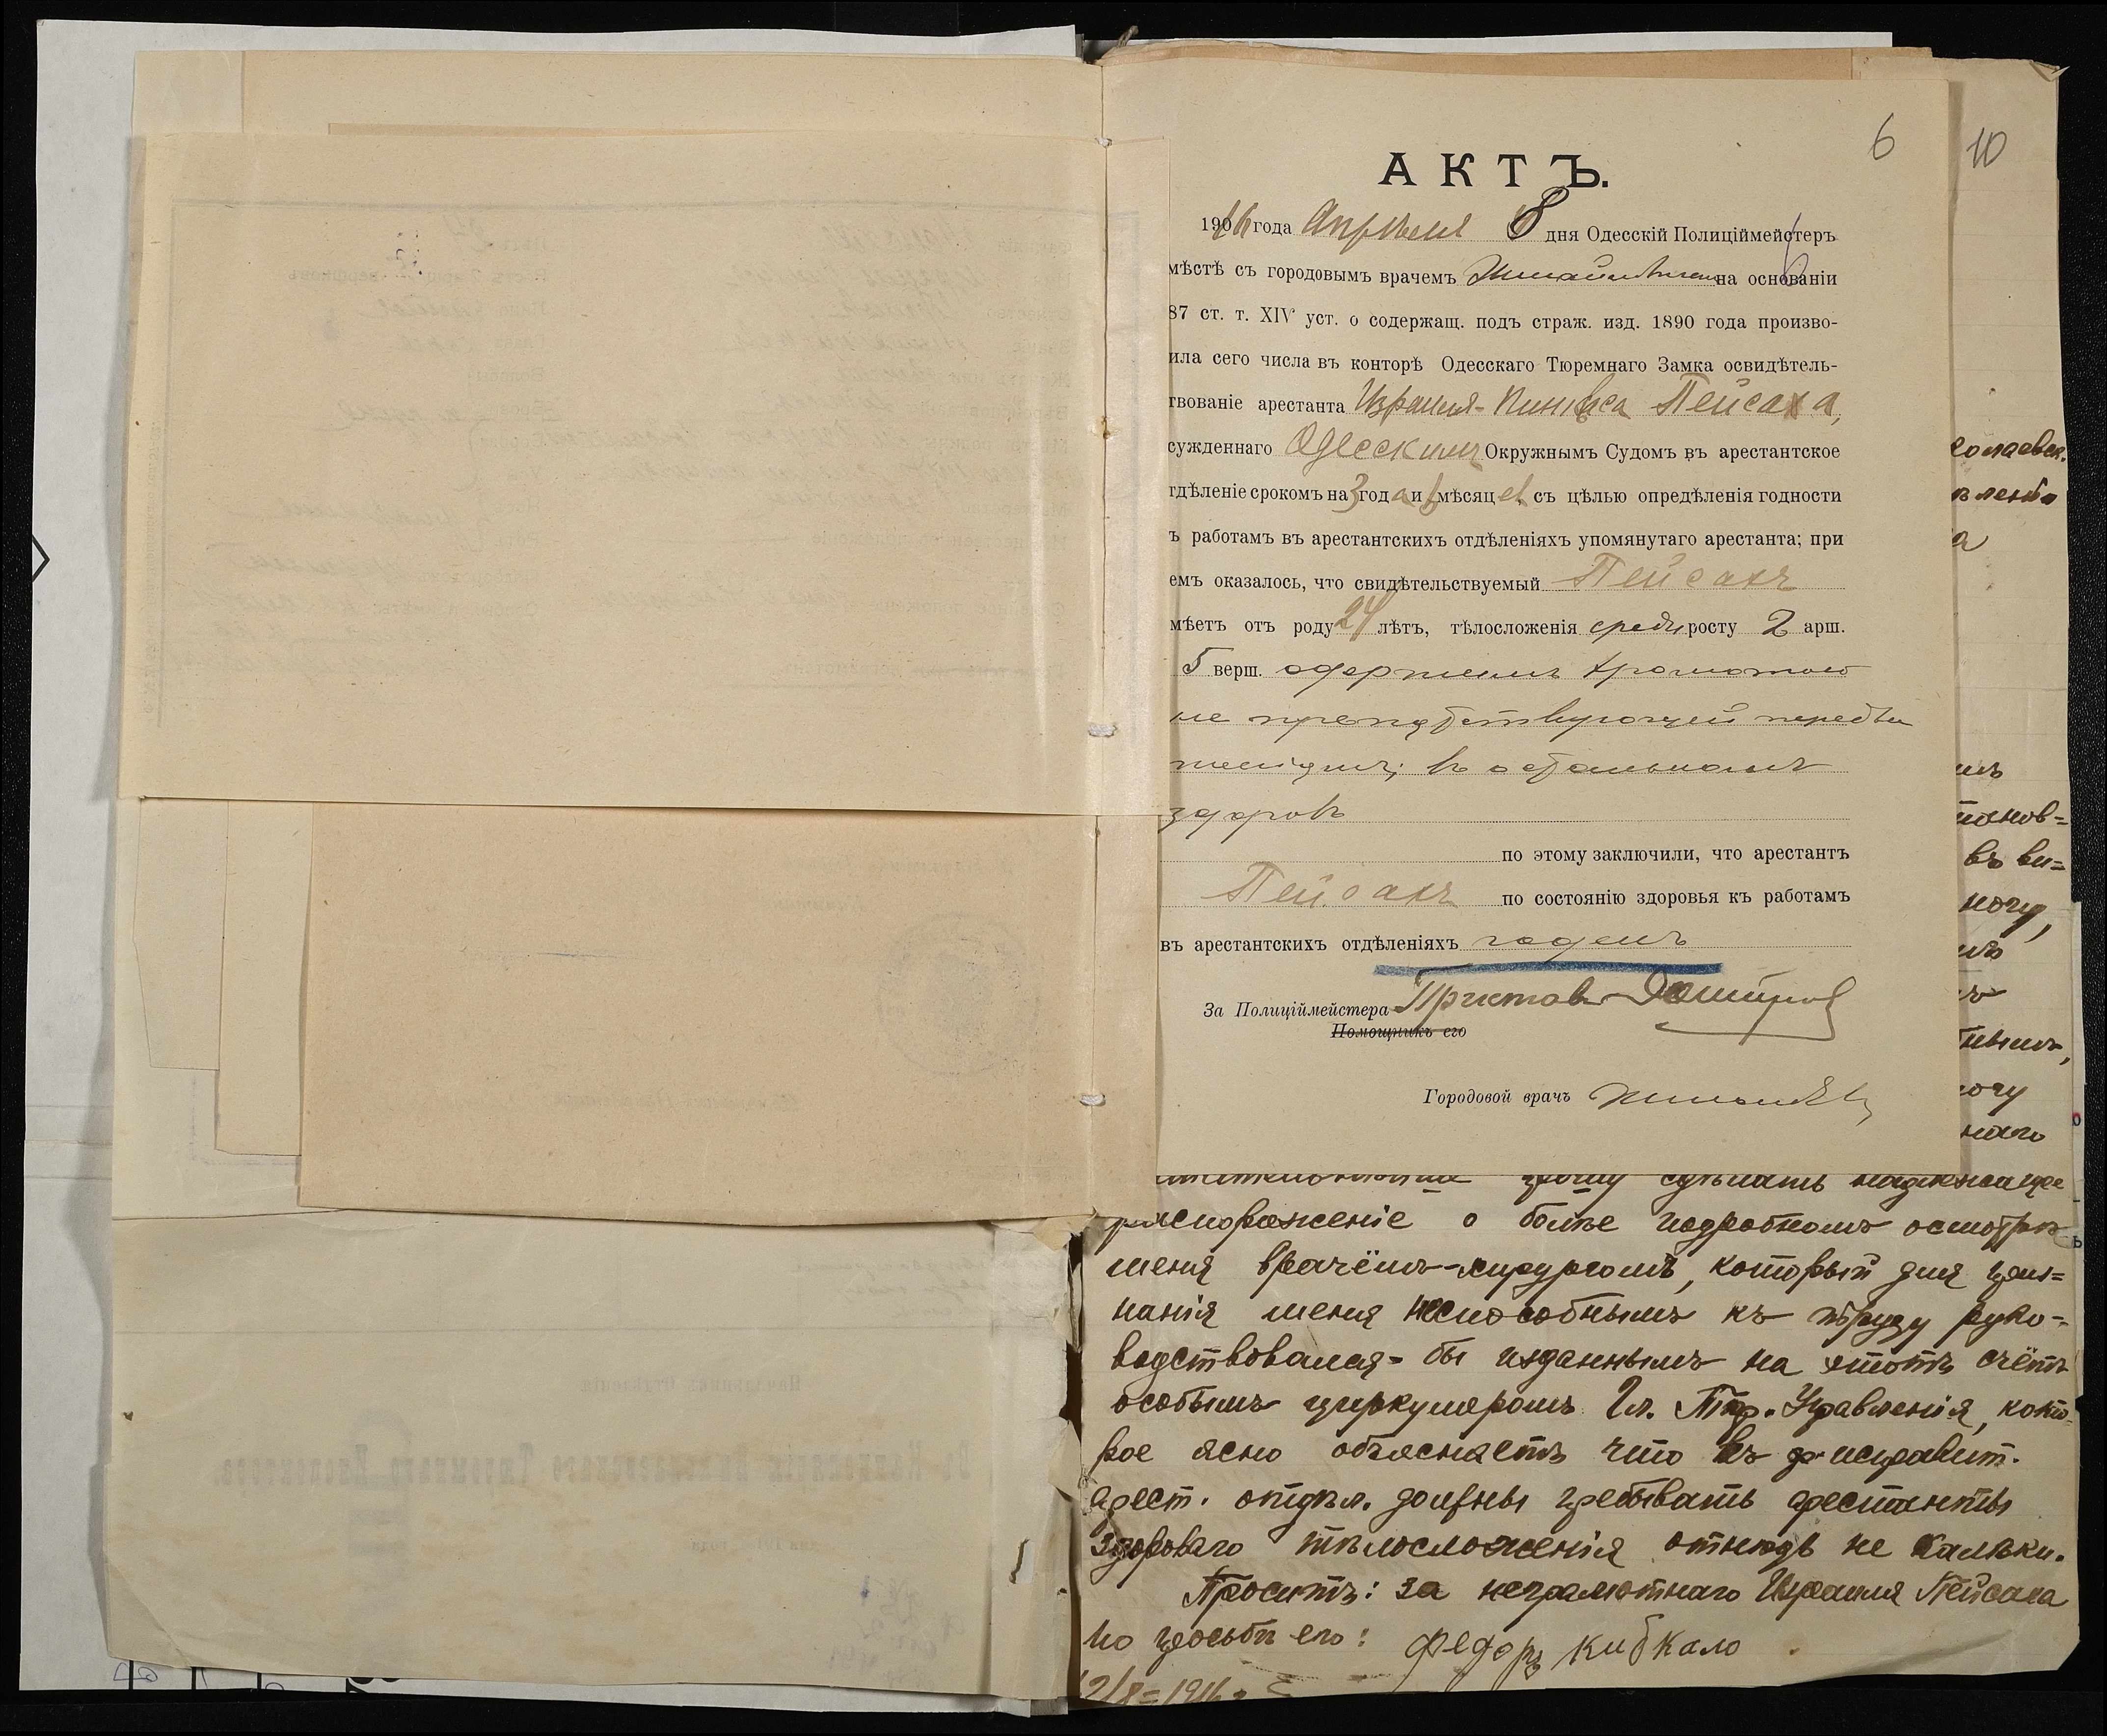 6
10
АКТЪ.
1916 года Апрѣля 8 дня Одесскій Полиціймейстеръ
мѣстѣ съ городовымъ врачемъ на основаніи
87 ст. т. XIV уст. о содержащ. подъ страж. изд. 1890 года произво-
ила сего числа въ конторѣ Одесскаго Тюремнаго Замка освидѣтель-
твованіе арестанта Израиля-Пинхаса Пейсаха,
сужденнаго Одесскимъ Окружнымъ Судомъ въ арестантское
тдѣленіе срокомъ на 3 года и 6 мѣсяцев съ цѣлью опредѣленія годности
ъ работамъ въ арестантскихъ отдѣленіяхъ упомянутаго арестанта; при
емъ оказалось, что свидѣтельствуемый Пейсахъ
мѣетъ отъ роду 24 лѣтъ, тѣлосложенія средн росту 2 арш.
5 верш. одержимъ хромотою
не препятствующей передви
женiямъ; в остальномъ
здоровъ
по этому заключили, что арестантъ
Пейсахъ по состоянію здоровья къ работамъ
въ арестантскихъ отдѣленіяхъ годенъ
За Полиціймейстера Приставъ
Помощникъ его
Городовой врачъ
колаевск.
а
танов=
въ ви=
ногу,
ногу
наго
прошу сдѣлать надлежаще
распоряженіе о болѣе подробномъ осмотрѣ
меня врачёмъ-хирургомъ, который для приз=
нанія меня неспособнымъ къ труду руко=
водствовался-бы изданнымъ на этотъ счётъ
особымъ циркуляромъ Гл. Тюр. Управленія, кото-
рое ясно объясняетъ что въ исправит.
арест. отдѣл. должны пребывать арестанты
здороваго тѣлосложенія отнюдь не калѣки.
Проситъ: за неграмотнаго Израиля Пейсаха
по просьбѣ его: Федоръ Кибкало
12/8=1916 г.